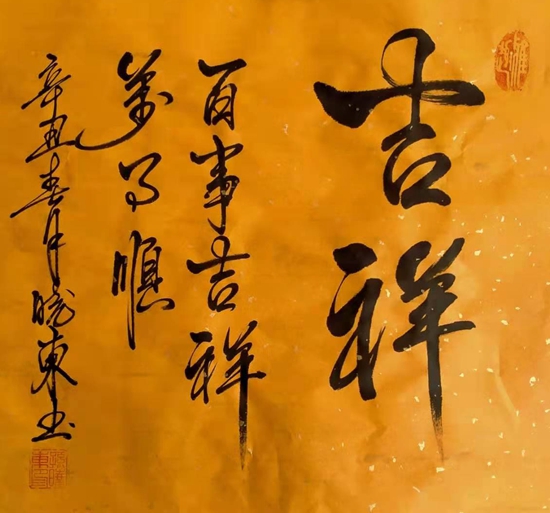 吉祥
百事吉祥
万事顺
辛丑春月晓东书